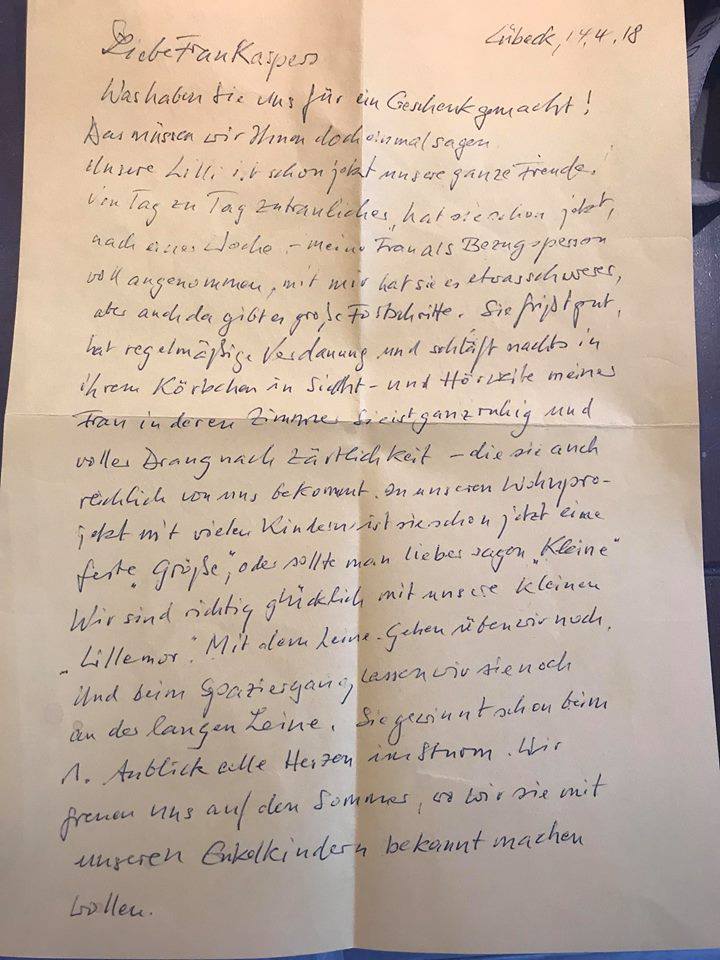 Lübeck, 14.4.18
Liebe Frau Kaspers
Was haben Sie uns für ein Geschenk gemacht!
Das müssen wir Ihnen doch einmal sagen
Unsere Lilli ist schon jetzt unsere ganze Freude.
Von Tag zu Tag zutraulicher, hat sie schon jetzt,
nach einer Woche - meine Frau als Bezugsperson
voll angenommen, mit mir hat sie es etwas schwerer,
aber auch da gibt es große Fortschritte. Sie frißt gut,
hat regelmäßige Verdauung und schläft nachts in
ihrem Körbchen in Sicht- und Hörweite meiner
Frau in deren Zimmer. Sie ist ganz ruhig und
voller Drang nach Zärtlichkeit - die sie auch
reichlich von uns bekommt. In unseren Wohnpro-
jekt mit vielen Kindern ist sie schon jetzt eine
feste "Größe", oder sollte man lieber sagen "Kleine"
Wir sind richtig glücklich mit unsere kleinen
"Lillemor". Mit dem Leine-Gehen üben wir noch.
Und beim Spaziergang lassen wir sie noch
an der langen Leine. Sie gewinnt schon beim
1. Anblick alle Herzen im Sturm. Wir
freuen uns auf den Sommer, wo wir sie mit
unseren Enkelkindern bekannt machen
wollen.